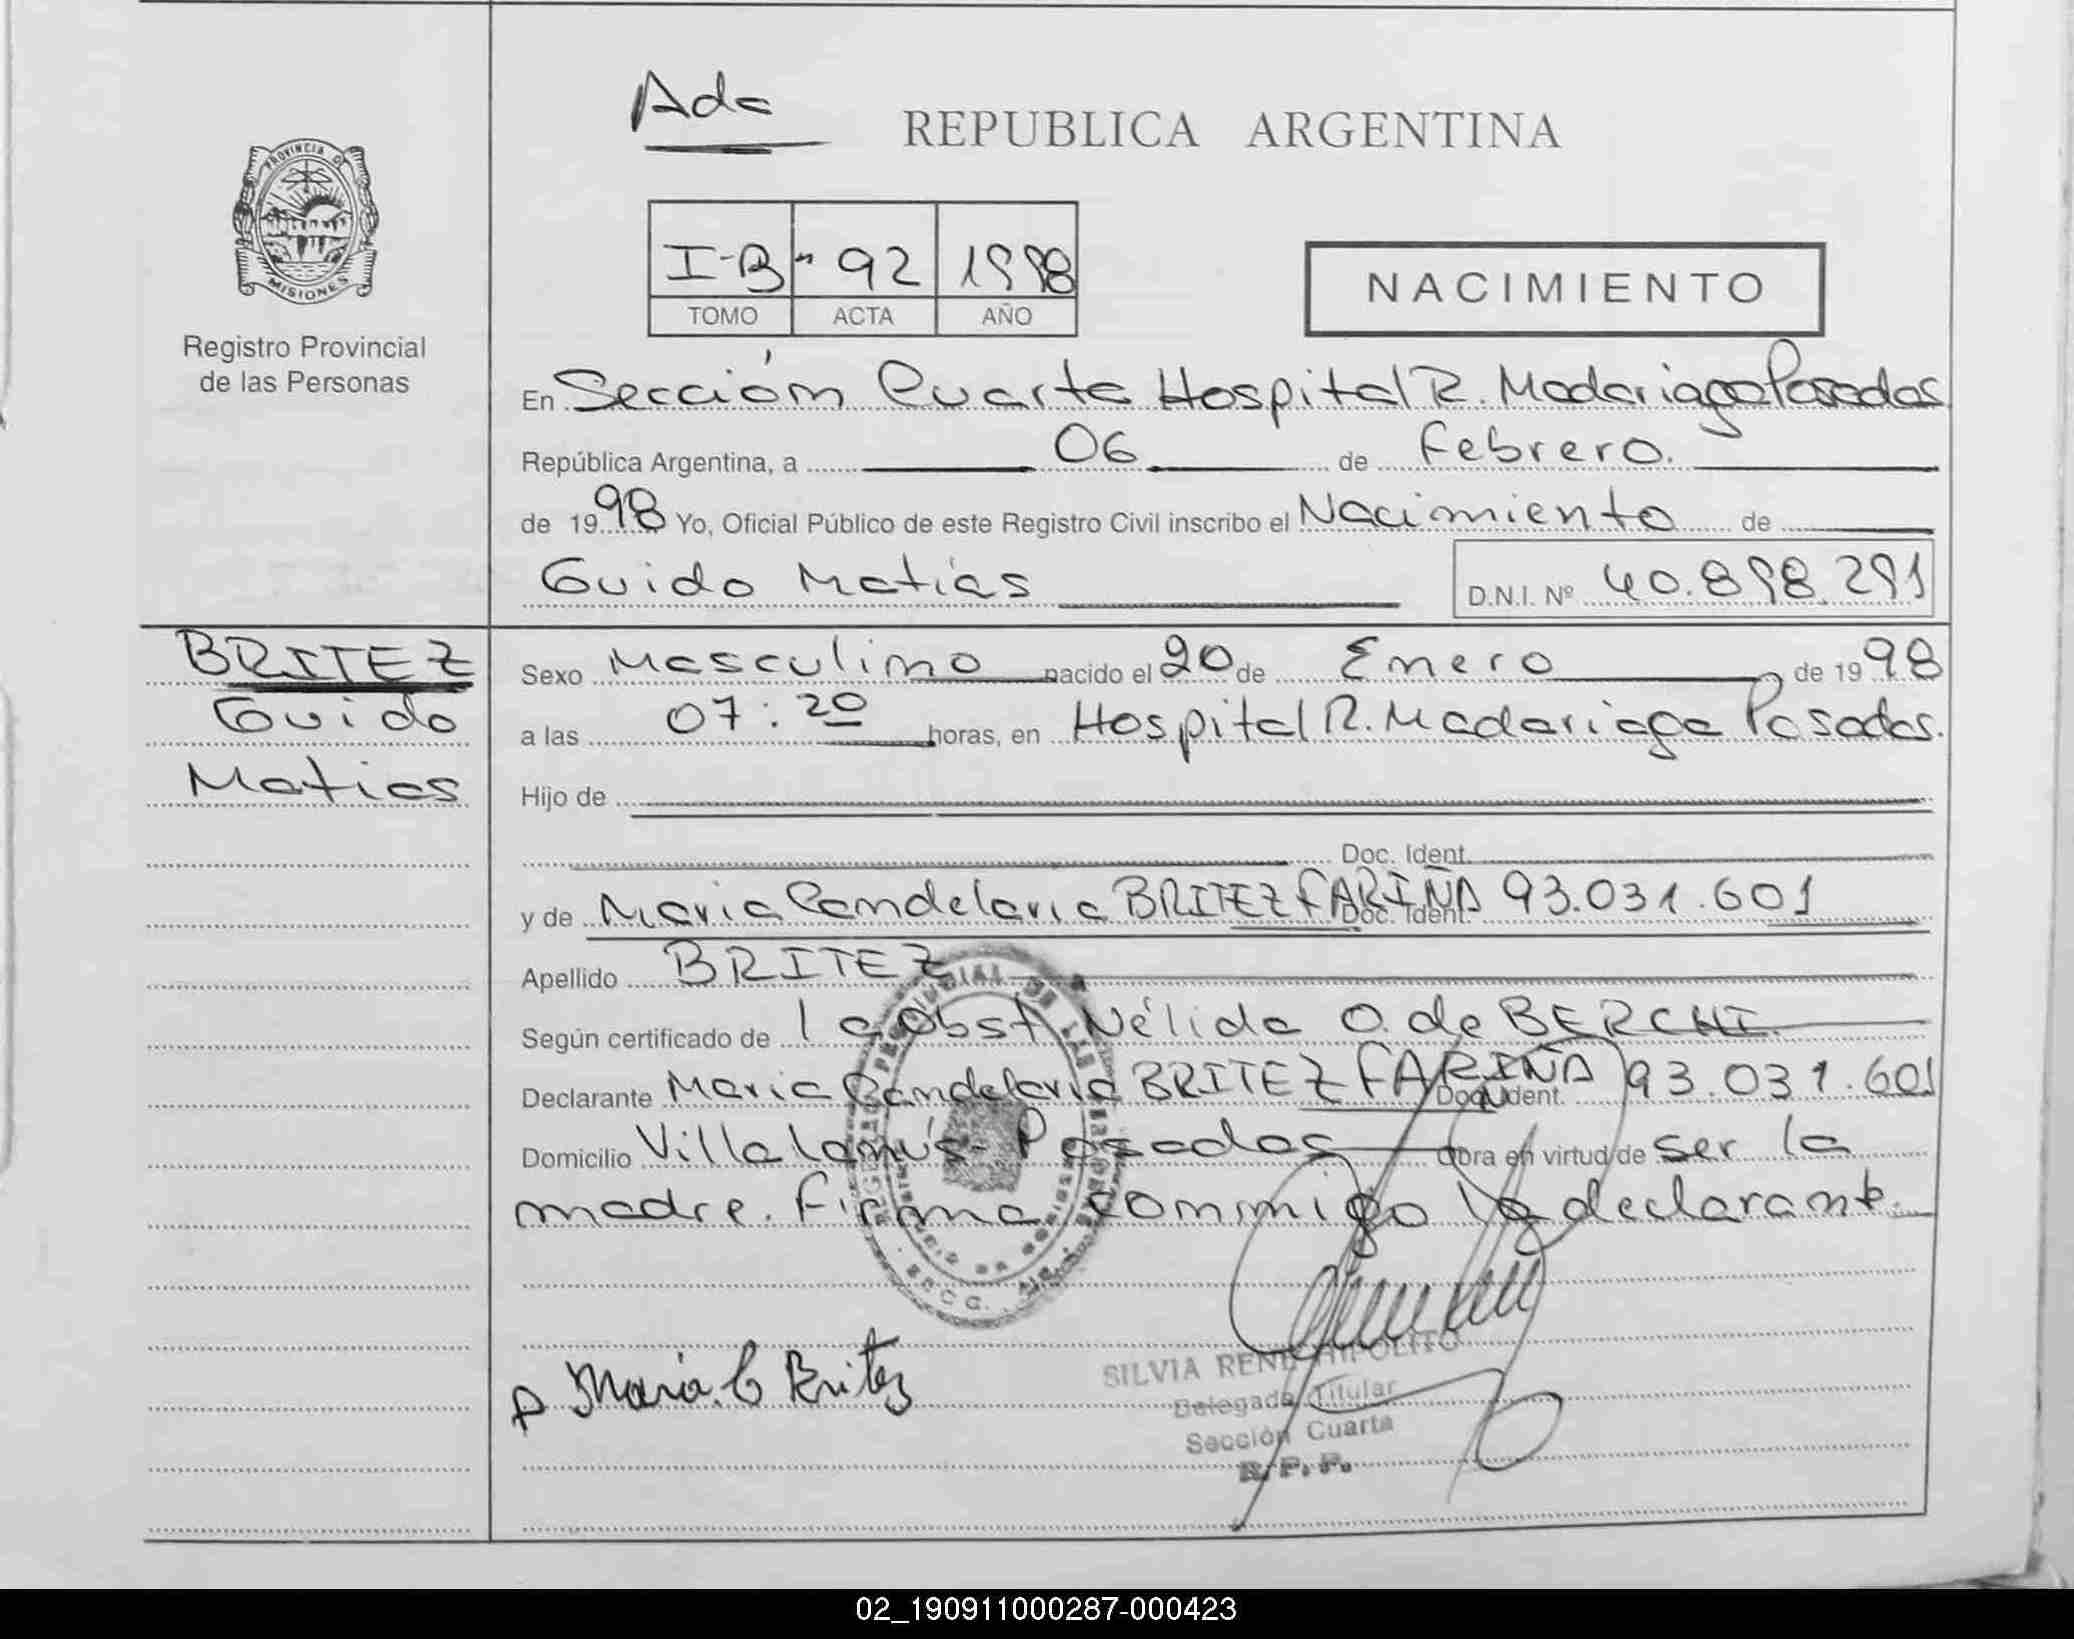 Ada
REPUBLICA ARGENTINA
PROVINCIA D
MISIONES
Registro Provincial
de las Personas
I-B- " 92 1998
TOMO ACTA AÑO
NACIMIENTO
En Sección Cuarta Hospital R. Madariaga Posadas
República Argentina, a 06 de febrero.
de 1998 Yo, Oficial Público de este Registro Civil inscribo el Nacimiento de
Guido Matías D.N.I. Nº 40.898.291
BRITEZ
Guido
Matias
Sexo Masculino nacido el 20 de Enero de 1998
a las 07:20 horas, en Hospital R. Madariaga Posadas.
Hijo de
Doc. Ident.
y de Maria Candelaria BRITEZ FARIÑA Doc. Ident. 93.031.601
Apellido BRITEZ
Según certificado de la Obst. Nélida O. de BERCHI.
Declarante Maria Candelaria BRITEZ FARIÑA Doc. Ident. 93.031.601
Domicilio Villa Lanús- Posadas Obra en virtud de ser la
madre. Firma conmigo la declarante.
Maria. C Britez
SILVIA RENE HIPOLITO
Delegada Titular
Sección Cuarta
R. P. P.
02_190911000287-000423